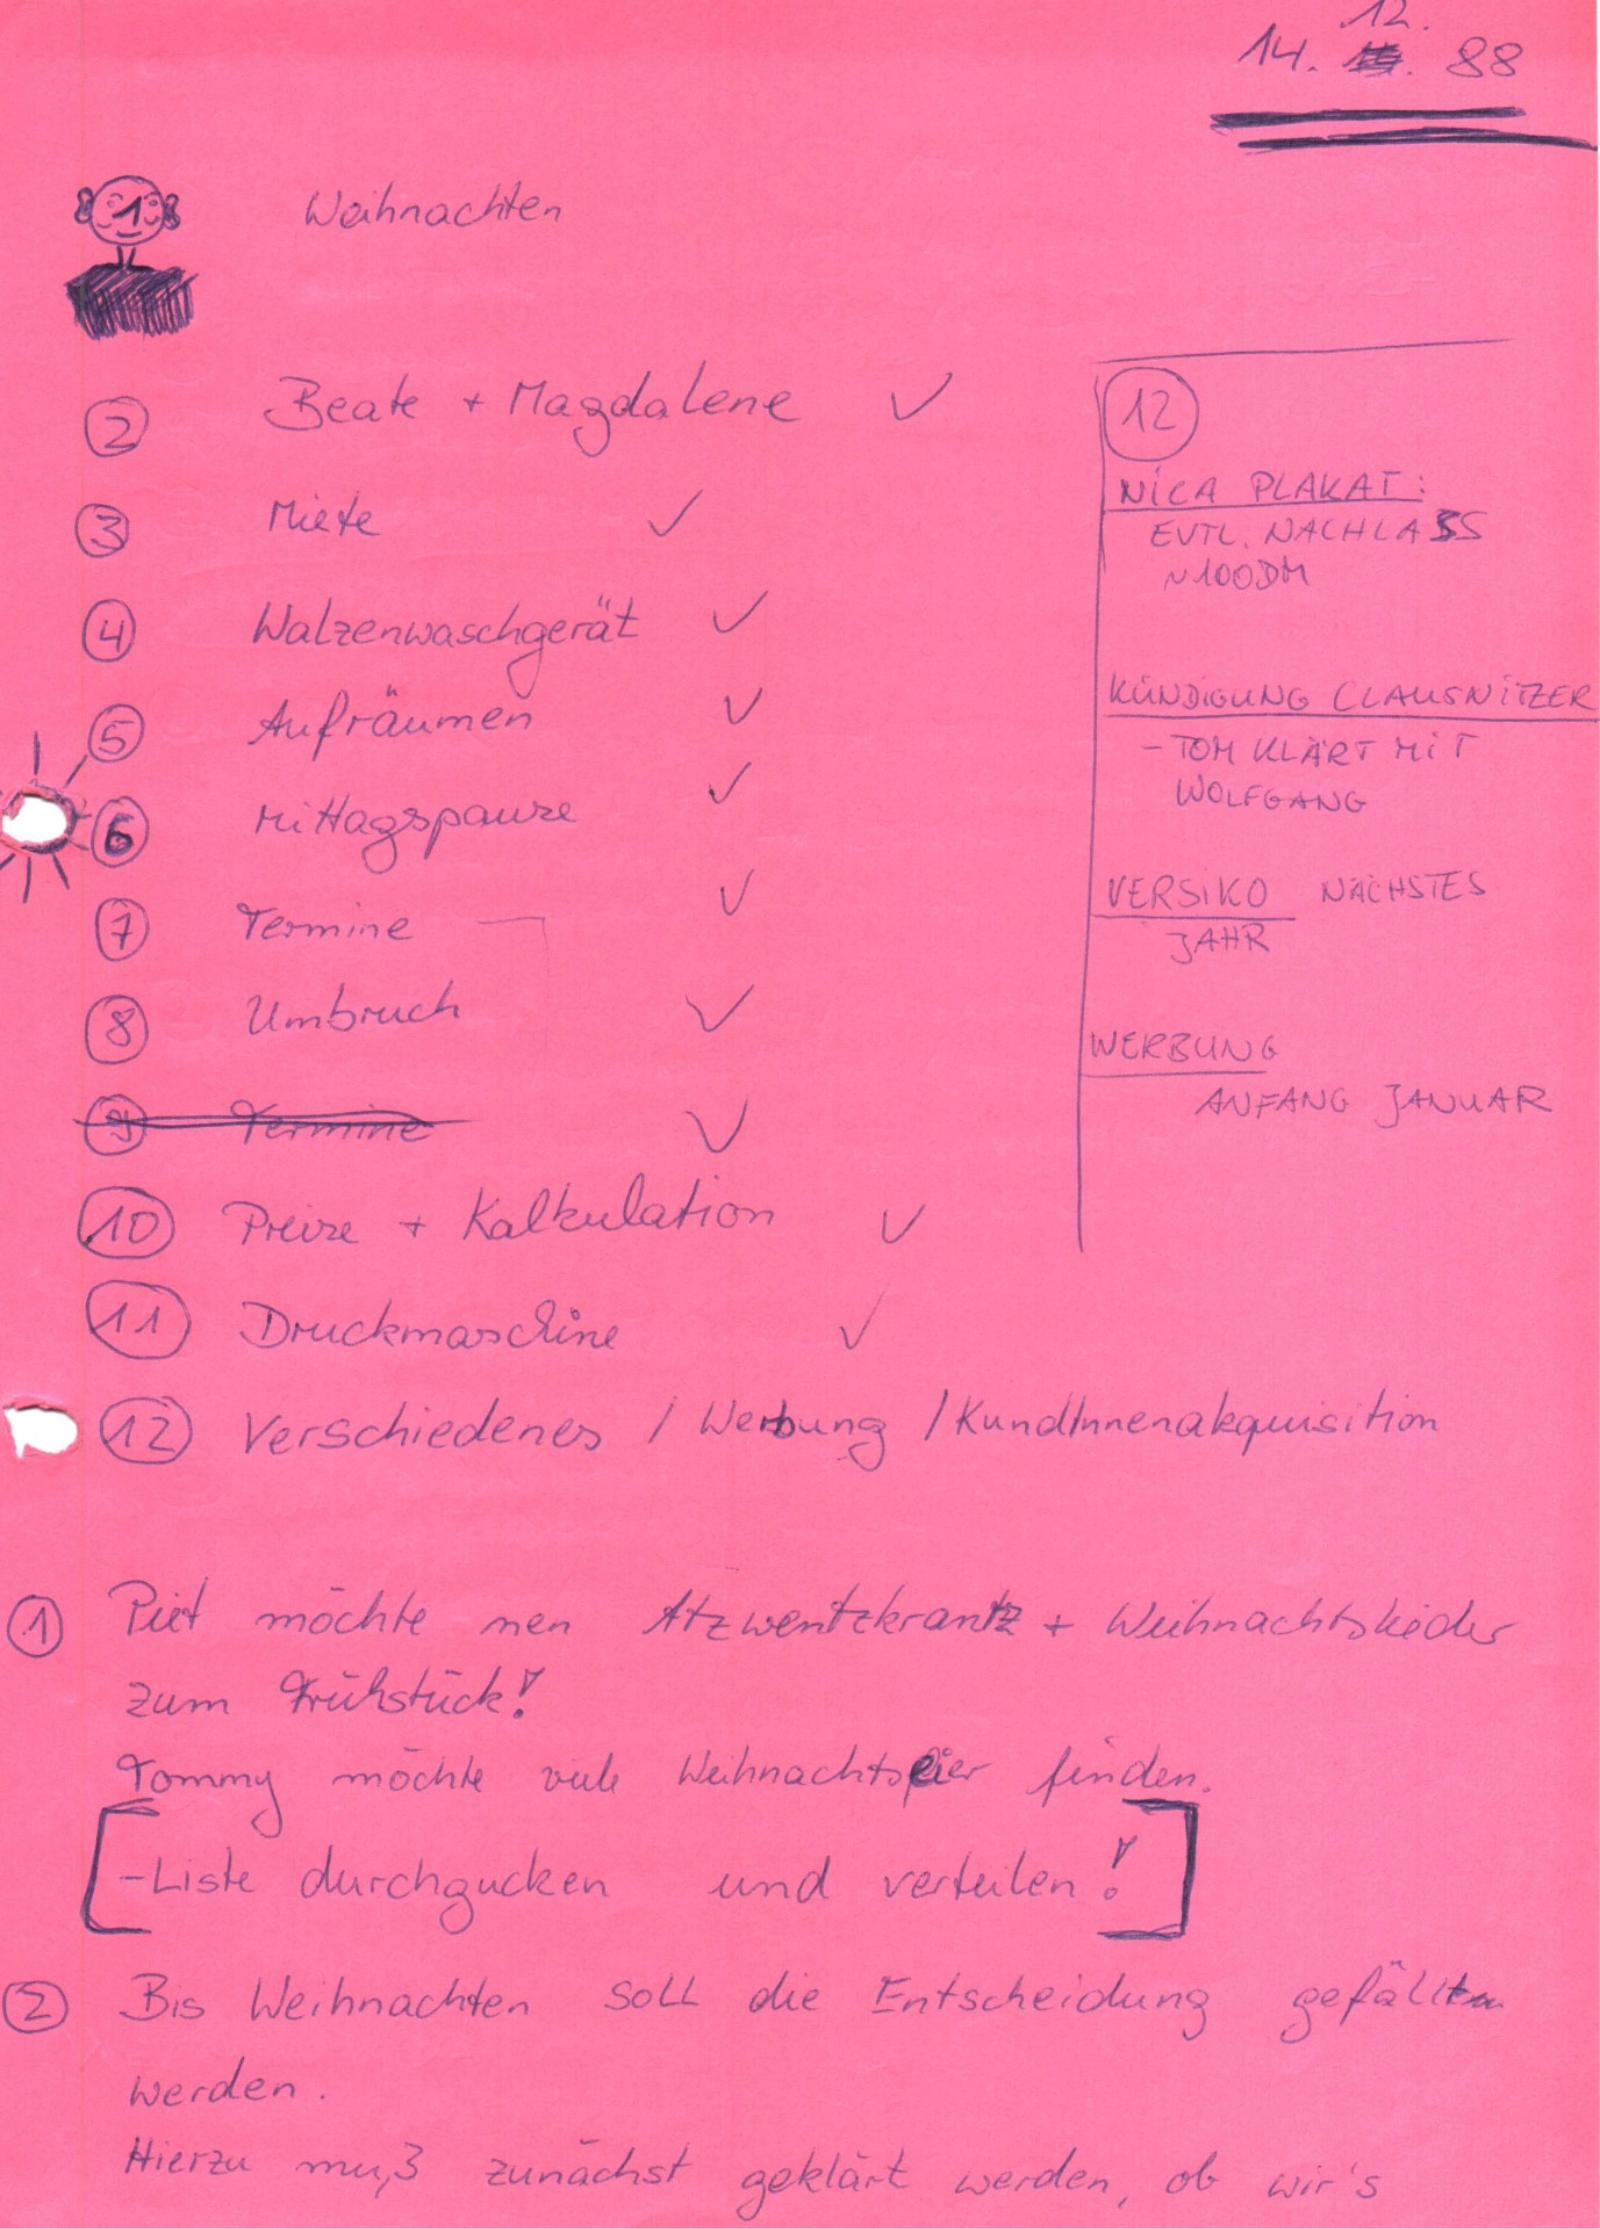 12.
14. 88
1 Weihnachten
2 Beate + Magdalene ✓
3 Miete ✓
4 Walzenwaschgerät ✓
5 Aufräumen ✓
6 Mittagspause ✓
7 Termine ✓
8 Umbruch ✓
9 Termine ✓
10 Preise + Kalkulation ✓
11 Druckmaschine ✓
12 Verschiedenes / Werbung / KundInnenakquisition
12
NICA PLAKAT:
EVTL. NACHLASS
~100DM
KÜNDIGUNG CLAUSNITZER
- TOM KLÄRT MIT
WOLFGANG
VERSIKO NÄCHSTES
JAHR
WERBUNG
ANFANG JANUAR
1 Piet möchte nen Atzwentzkrantz + Weihnachtslieder
zum Frühstück!
Tommy möchte viele Weihnachtseier finden.
[-Liste durchgucken und verteilen!]
2 Bis Weihnachten soll die Entscheidung gefällt
werden.
Hierzu muß zunächst geklärt werden, ob wir's